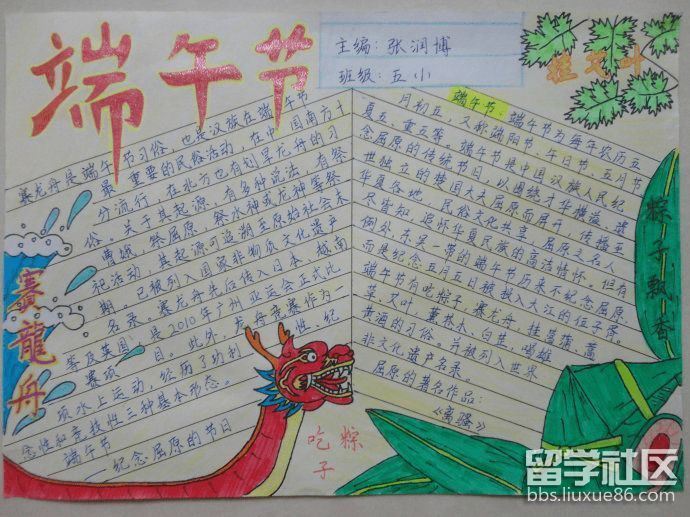 端午节
主编：张润博
班级：五小
挂艾叶
赛龙舟是端午节习俗，也是汉族在端午节
最重要的民俗活动，在中国南方十
分流行，在北方也有划旱龙舟的习
俗。关于其起源，有多种说法，有祭
曹娥，祭屈原，祭水神或龙神等祭
祀活动，其起源可追溯至原始社会末
期。已被列入国家非物质文化遗产
名录。赛龙舟先后传入日本、越南
等及英国，是2010年广州亚运会正式比
赛项目。此外，龙舟竞赛作为一
项水上运动，经历了功利性、纪
念性和竞技性三种基本形态。
端午节
——纪念屈原的节日
端午节：端午节为每年农历五
月初五，又称端阳节、午日节、五月节
夏五、重五等。端午节是中国汉族人民纪
念屈原的传统节日，以围绕才华横溢、遗
世独立的楚国大夫屈原而展开，传播至
华夏各地，民俗文化共享，屈原之名人
尽皆知，追怀华夏民族的高洁情怀。但有
例外东吴一带的端午节历来不纪念屈原
而是纪念五月五日被投入大江的伍子胥。
端午节有吃粽子，赛龙舟，挂菖蒲、蒿
草、艾叶，薰苍术、白芷，喝雄
黄酒的习俗。并被列入世界
非文化遗产名录。
屈原的著名作品：
《离骚》
赛龍舟
粽子飘香
吃粽子
留学社区
bbs.liuxue86.com